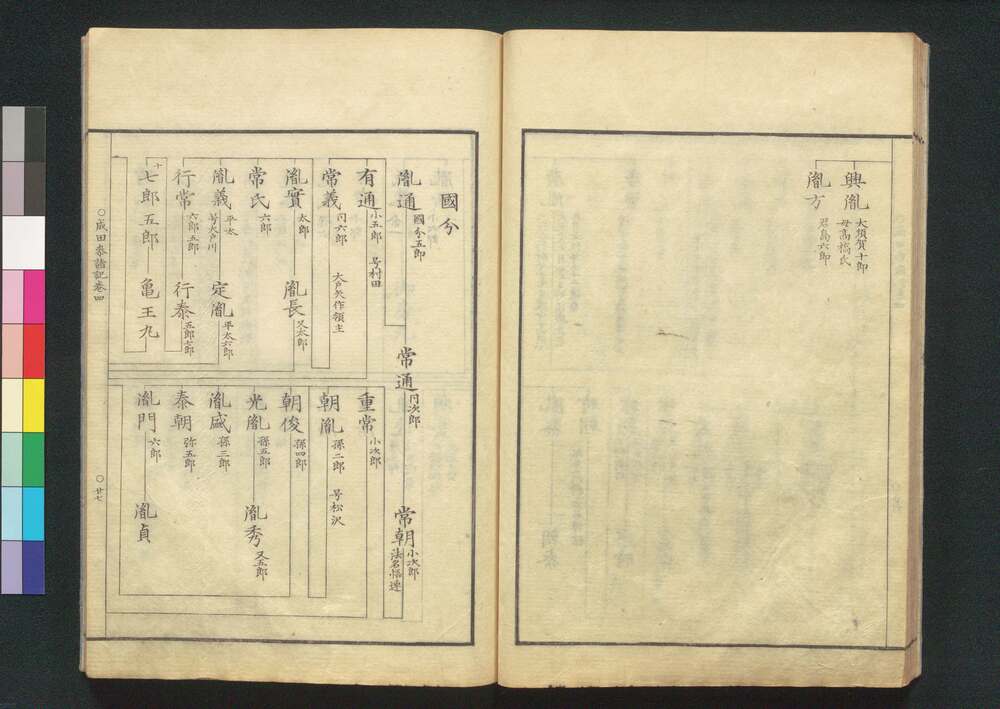 興胤 大須賀十郎
母高橋氏
胤方 君島六郎
國分
胤通 國分五郎
常通 同次郎
常朝 小次郎
法名悟達
有通 小五郎 号村田
常義 同六郎 大戸矢作領主
胤實 太郎
胤長 又太郎
常氏 六郎
胤義 平太
号大戸川
定胤 平太六郎
行常 六郎五郎
行泰 五郎七郎
七郎五郎
亀王丸
重常 小次郎
朝胤 孫二郎 号松沢
朝俊 孫四郎
光胤 孫五郎
胤秀 又五郎
胤盛 孫三郎
泰朝 弥五郎
胤門 六郎
胤貞
○成田参詣記巻四
○廿七